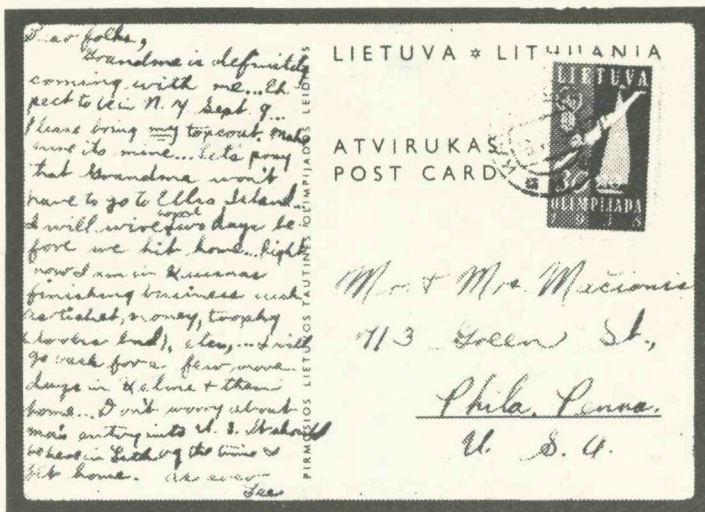 Dear folks,
Grandma is definitely
coming with me... Ex
pect to be in N.Y Sept. 9...
Please bring my topcoat. Make
sure its mine... Lets pray
that Grandma won't
have to go to Ellis Island...
I will wire two days be
fore we hit home... Right
now I am in Kaunas
finishing business such
as ticket, money, trophy
etc., ... I will
go back for a few more
days in + then
home... Don't worry about
mom's entry into U.S. It should
be here in by the time I
get home. As ever
PIRMOSIOS LIETUVOS TAUTINĖS OLIMPIJADOS LEIDINYS
LIETUVA * LITHUANIA
ATVIRUKAS
POST CARD
LIETUVA
OLIMPIADA
Mr. + Mrs. Mačionis
713 Green St.,
Phila. Penna.
U. S. A.